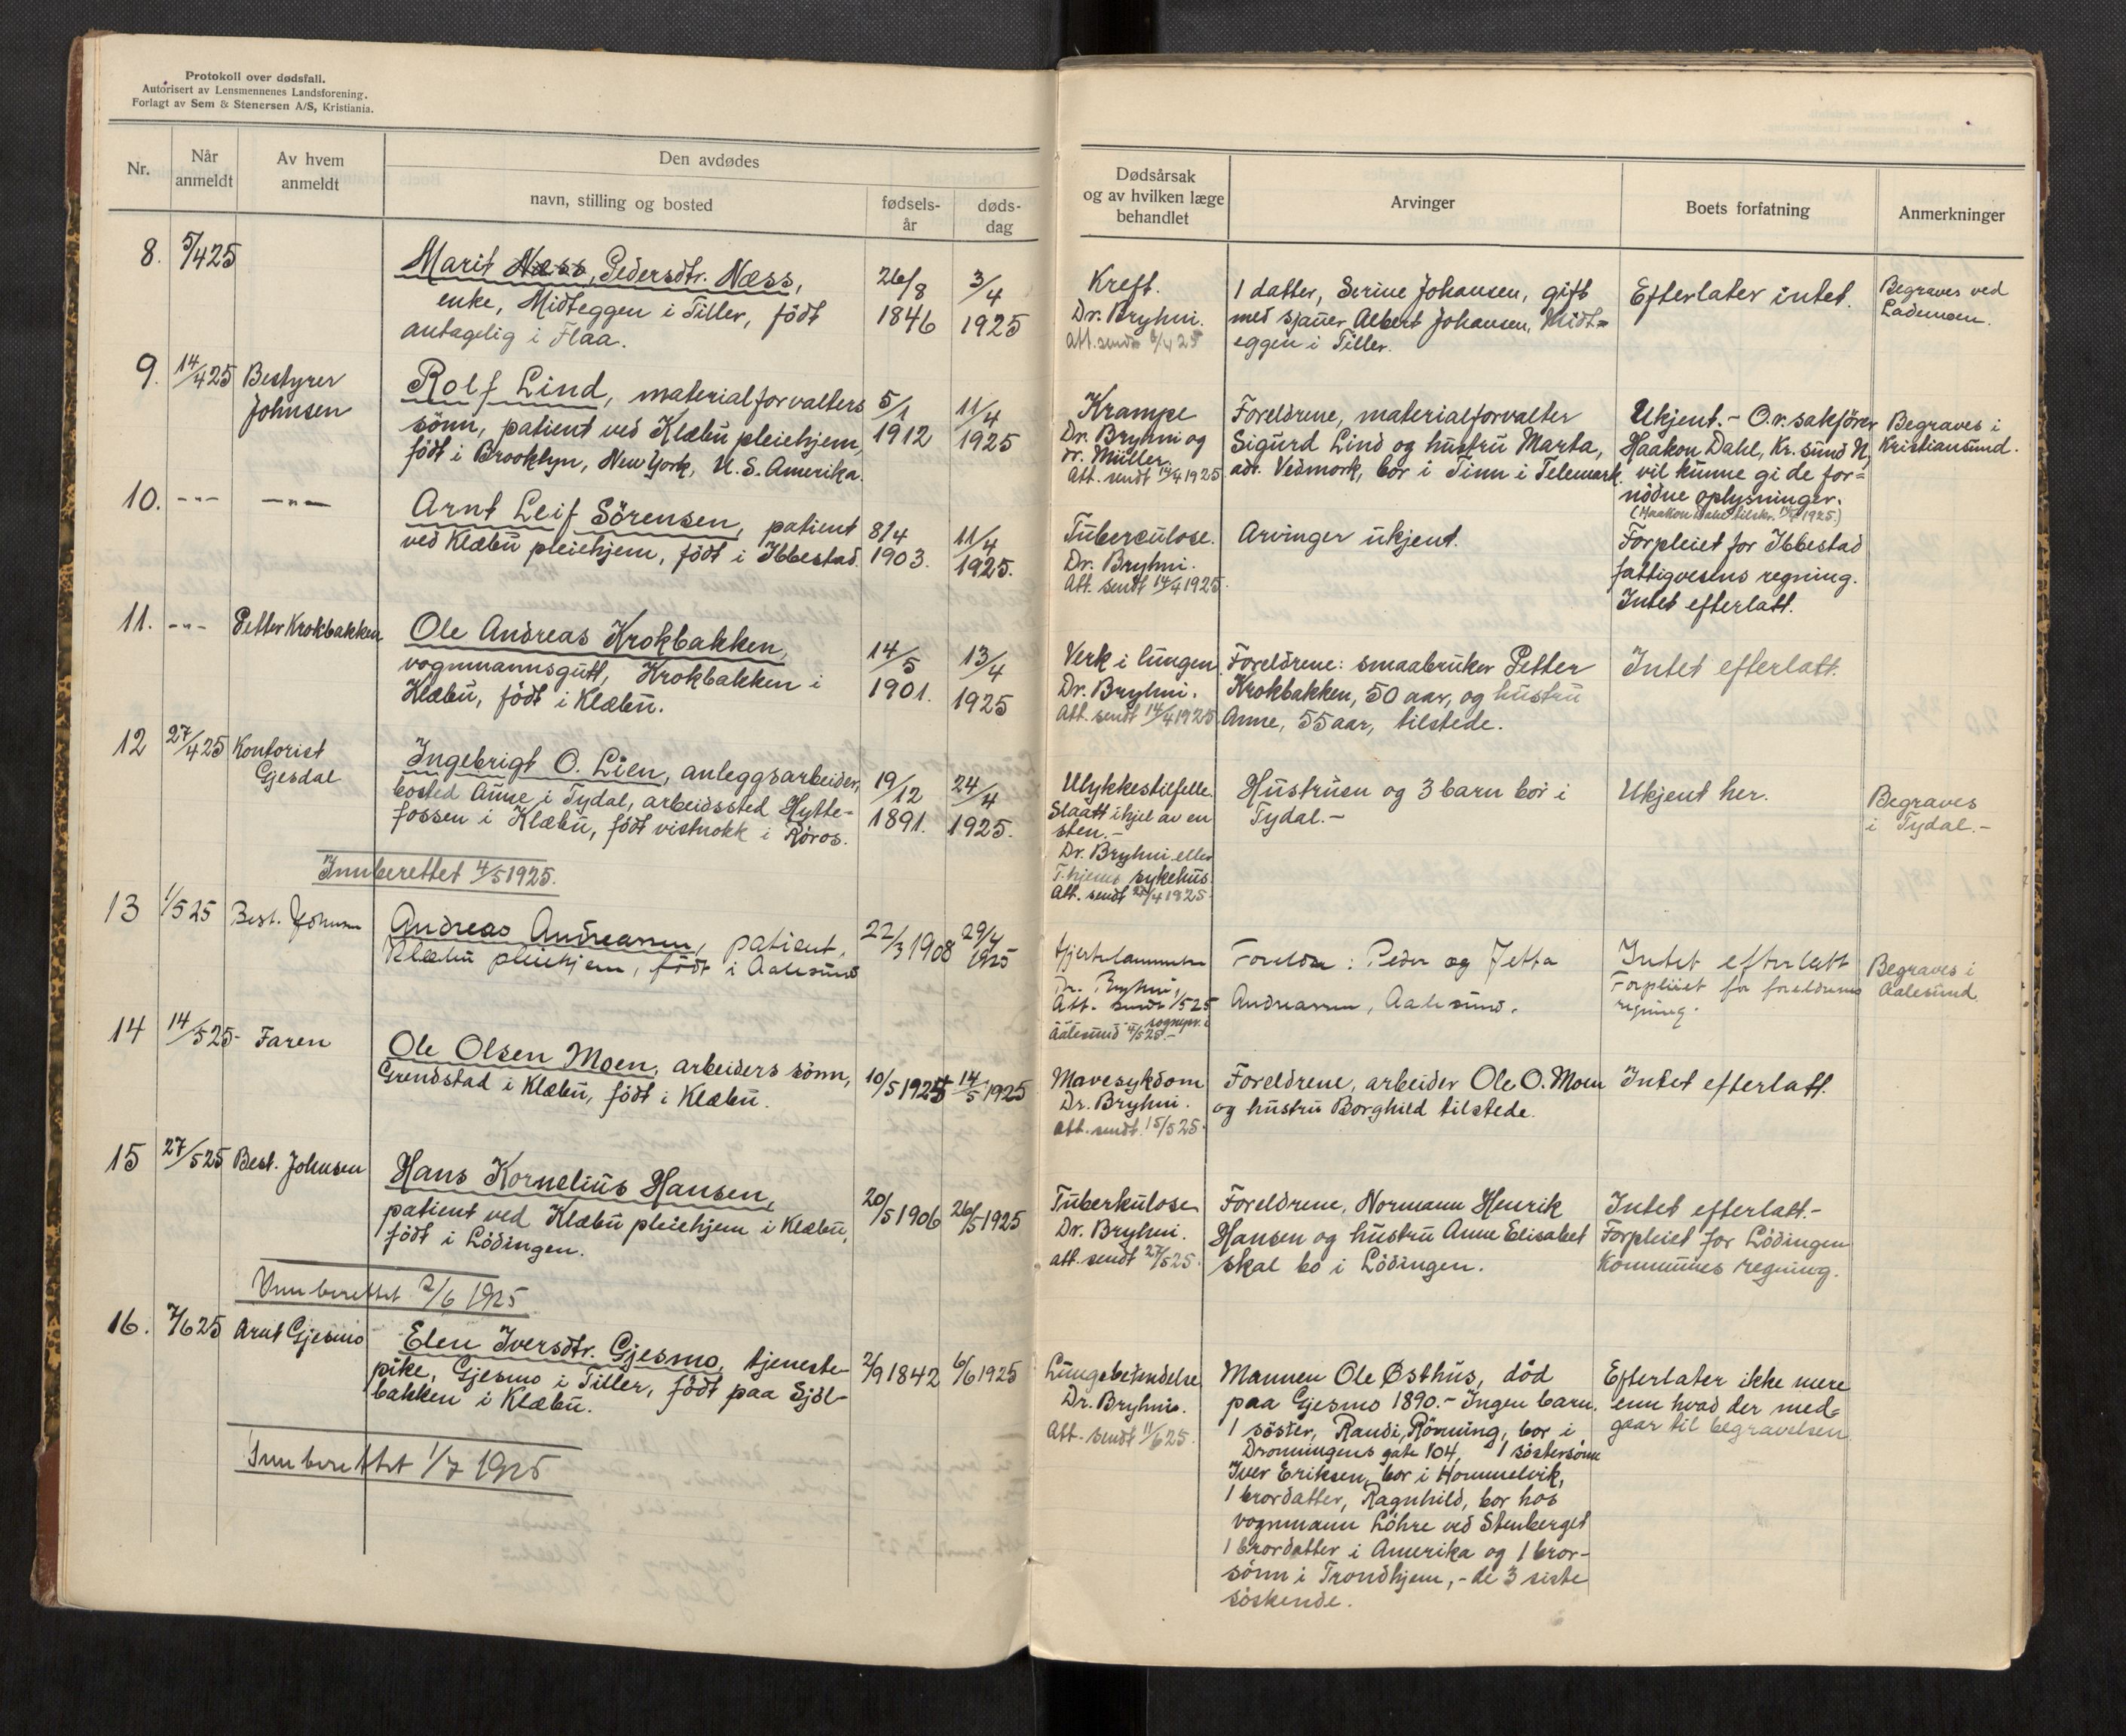 Protokoll over dødsfall.
Autorisert av Lensmennenes Landsforening.
Forlagt av Sem & Stenersen A/S, Kristiania.
Nr.
Når
anmeldt
Av hvem
anmeldt
Den avdødes
navn, stilling og bosted
fødsels-
år
døds-
dag
Dødsårsak
og av hvilken læge
behandlet
Arvinger
Boets forfatning
Anmerkninger
8.
5/4 25
Marit Næss, Pedersdtr. Næss,
enke, Midteggen i Tiller, födt
antagelig i Flaa.
26/8
1846
3/4
1925
Kreft.
Dr. Bryhni.
Att. sendt 6/4 25
1 datter, Serine Johansen, gift
med sjauer Albert Johansen, Midt=
eggen i Tiller.
Efterlater intet.
Begraves ved
Lademoen.
9.
14/4 25
Bestyrer
Johnsen
Rolf Lind, materialforvalters
sönn, patient ved Klæbu pleiehjem,
födt i Brooklyn, New York, U.S. Amerika.
5/1
1912
11/4
1925
Krampe
Dr. Bryhni og
dr. Müller.
Att. sendt 14/4 1925
Foreldrene, materialforvalter
Sigurd Lind og hustru Marta,
adr. Vedmork, bor i Tinn i Telemark.
Ukjent. - O.r. sakförer
Haakon Dahl, Kr. sund N,
vil kunne gi de for=
nödne oplysninger.
(Haakon Dahl tilskr. 1925.)
Begraves i
Kristiansund.
10.
-"-
-"-
Arnt Leif Sörensen, patient
ved Klæbu pleiehjem, födt i Ibbestad.
8/4
1903.
11/4
1925.
Tuberculose.
Dr. Bryhni.
Att. sendt 14/4 1925.
Arvinger ukjent.
Forpleiet for Ibbestad
fattigvesens regning.
Intet efterlatt.
11.
-"-
Petter Krokbakken
Ole Andreas Krokbakken,
vognmannsgutt, Krokbakken i
Klæbu, födt i Klæbu.
14/5
1901.
13/4
1925
Verk i lungen
Dr. Bryhni.
Att. sendt 14/4 1925.
Foreldrene: smaabruker Petter
Krokbakken, 50 aar, og hustru
Anne, 55 aar, tilstede.
Intet efterlatt.
12
27/4 25
Kontorist
Gjesdal
Ingebrigt O. Lien, anleggsarbeider,
bosted Aune i Tydal, arbeidssted Hytte-
fossen i Klæbu, födt vistnokk i Röros.
19/12
1891.
24/4
1925.
Ulykkestilfelle.
Slaatt ihjel av en
sten.-
Dr. Bryhni eller
T.hjems sykehus
Att. sendt 27/4 1925.
Hustruen og 3 barn bor i
Tydal.-
Ukjent her.
Begraves
i Tydal.-
Innberettet 4/5 1925.
13
1/5 25
Best. Johnsen
Andreas Andreassen, patient,
Klæbu pleiehjem, födt i Aalesund
22/3 1908
29/4
1925
Hjertelammelse
Dr. Bryhni,
Att. sendt 1/5 25
sognepr. i
Aalesund 4/5 25.-
Foreldre: Peder og Jetta
Andreassen, Aalesund.
Intet efterlatt
Forpleiet for foreldrenes
regning.
Begraves i
Aalesund.
14
14/5 25-
Faren
Ole Olsen Moen, arbeiders sönn,
Grendstad i Klæbu, födt i Klæbu.
10/5 1925
14/5 1925
Mavesykdom
Dr. Bryhni.
Att. sendt 15/5 25.
Foreldrene, arbeider Ole O. Moen
og hustru Borghild tilstede.
Intet efterlatt.
15
27/5 25
Best. Johnsen
Hans Kornelius Hansen,
patient ved Klæbu pleiehjem i Klæbu,
födt i Lödingen.
20/5 1906
26/5 1925
Tuberkulose
Dr. Bryhni.
att. sendt 27/5 25.
Foreldrene, Normann Henrik
Hansen og hustru Anne Elisabet
skal bo i Lödingen.
Intet efterlatt.-
Forpleiet for Lödingen
Kommunes regning.
Innberettet 2/6 1925
16.
7/6 25
Arnt Gjesmo
Elen Iversdtr. Gjesmo, tjeneste-
pike, Gjesmo i Tiller, födt paa Sjöl-
bakken i Klæbu.
2/9 1842
6/6 1925
Lungebetendelse
Dr. Bryhni.
Att. sendt 11/6 25.
Mannen Ole Østhus, död
paa Gjesmo 1890.- Ingen barn.
1 söster, Randi, Rönning, bor i
Dronningens gate 104, 1 söstersönn
Iver Eriksen, bor i Hommelvik,
1 brordatter, Ragnhild, bor hos
vognmann Löhre ved Stenberget
1 brordatter i Amerika og 1 bror-
sönn i Trondhjem,- de 3 siste
söskende.
Efterlater ikke mere
enn hvad der med=
gaar til begravelsen
Innberettet 1/7 1925